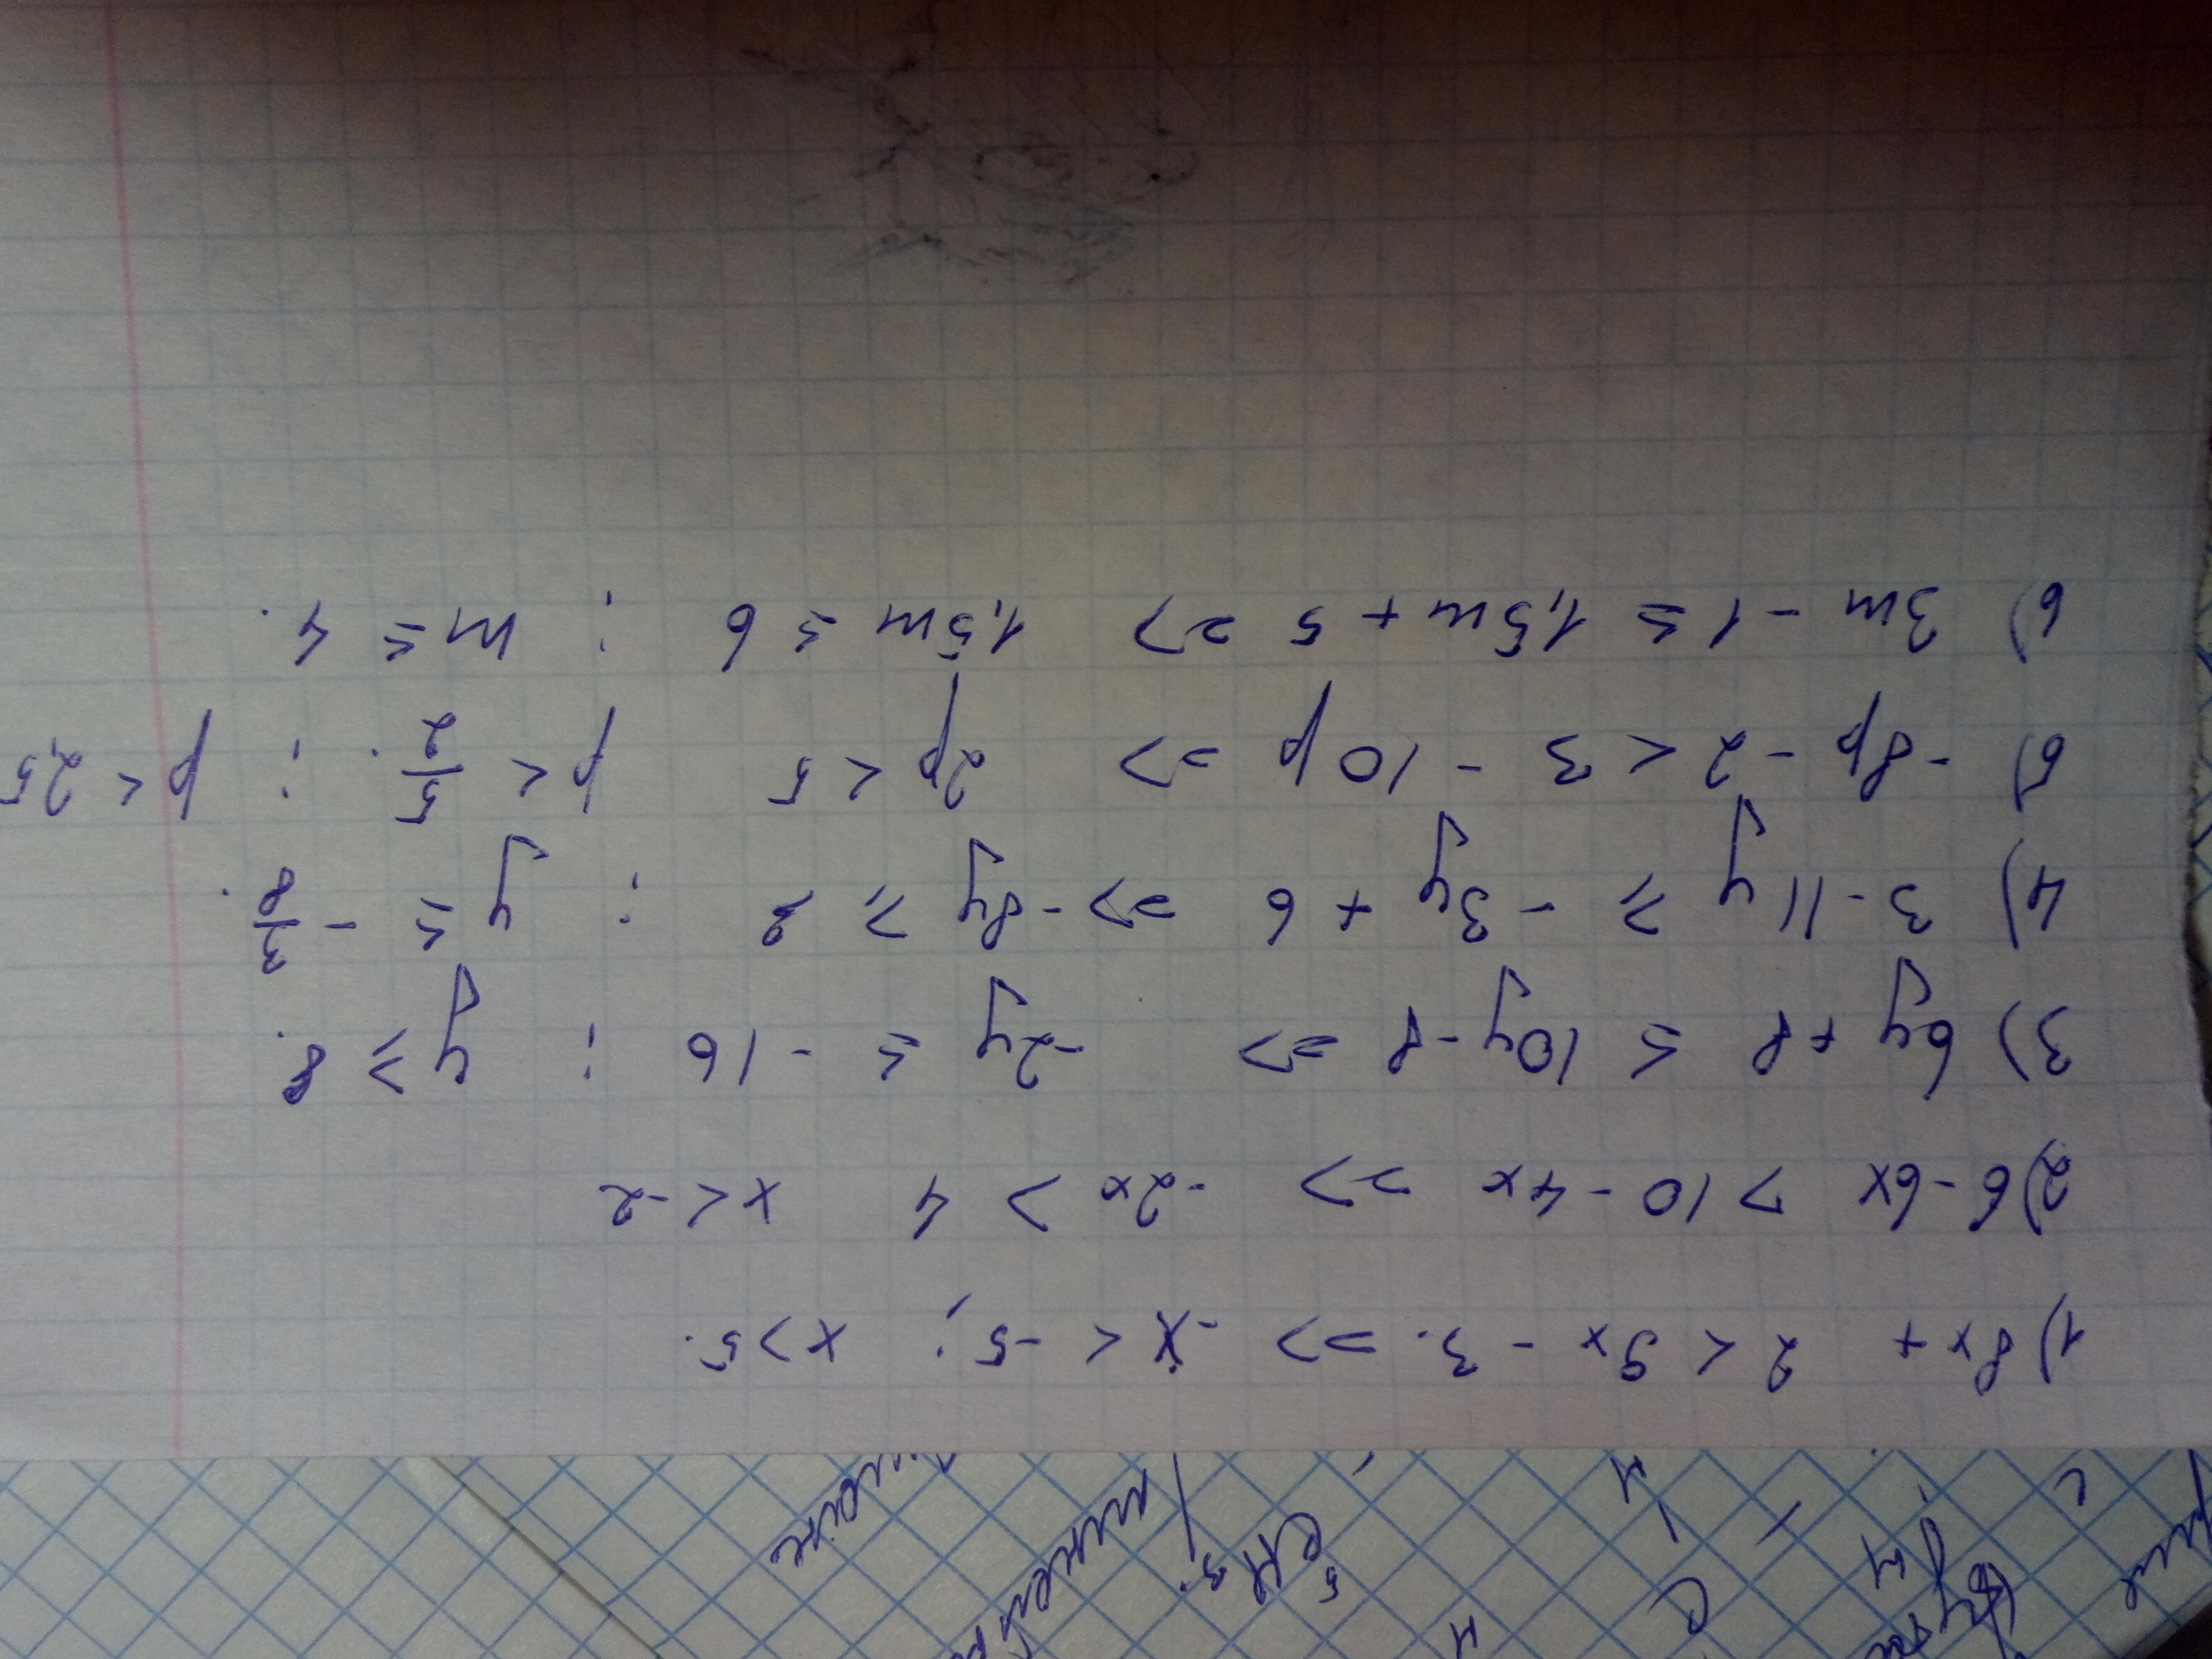 1) 8x + 2 < 9x - 3. => -x < -5; x > 5.
2) 6 - 6x > 10 - 4x => -2x > 4 x < -2
3) 6y + 8 ≤ 10y - 8 => -2y ≤ -16 ; y ≥ 8.
4) 3 - 11y ≥ -3y + 6 => -8y ≥ 3 ; y ≤ -3/8.
5) -8p - 2 < 3 - 10p => 2p < 5 p < 5/2. ; p < 2,5
6) 3m - 1 ≤ 1,5m + 5 => 1,5m ≤ 6 ; m ≤ 4.